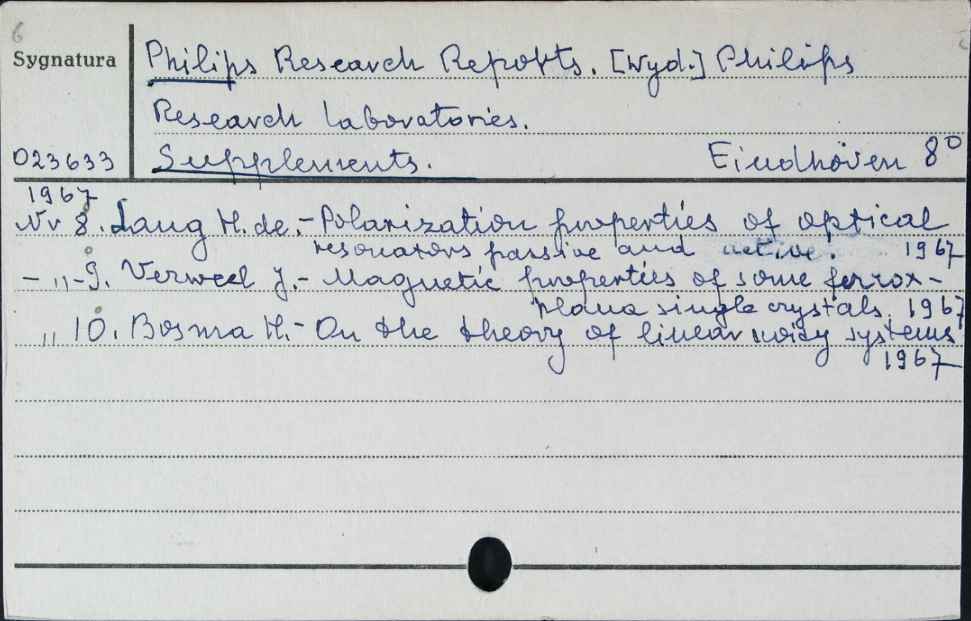 6
Sygnatura
Philips Research Reports. [Wyd.] Philips
Research Laboratories.
023633 Supplements. Eindhöven 8°
1967
Nr 8. Lang H. de.- Polarization properties of optical
resonators passive and active. 1967
- „ - 9. Verweel J.- Magnetic properties of some ferrox-
plana single crystals. 1967
„ 10. Bosma H.- On the theory of linear noisy systems
1967